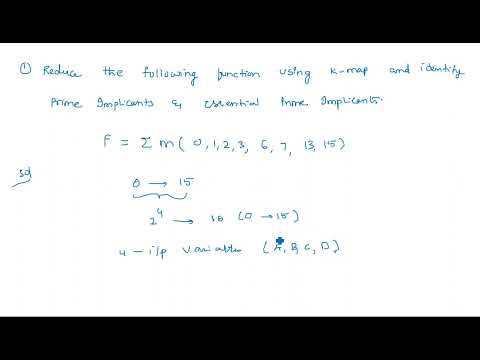 ① Reduce the following function using K-map and identify
Prime Implicants & essential Prime Implicants.
F = Σm( 0,1,2,3, 6,7, 13,15)
Sol
0 → 15
2⁴ → 16 (0→15)
4 - i/p Variables (A, B, C, D)